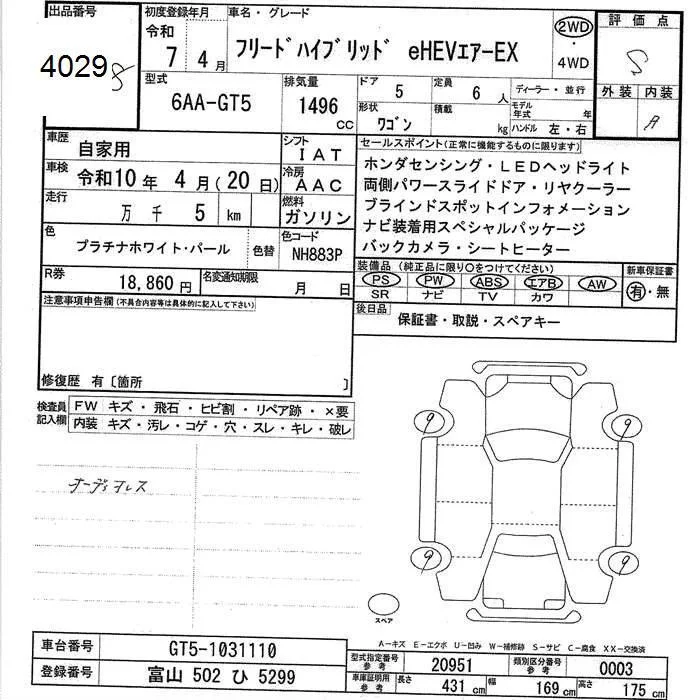 出品番号
40298
初度登録年月
令和
7年 4月
車名・グレード
フリードハイブリッド eHEVエアーEX
2WD
・
4WD
評価点
S
型式
6AA-GT5
排気量
1496
CC
ドア
5
定員
6人
ディーラー・並行
モデル年式 年
形状
ワゴン
積載
kg
ハンドル 左・右
外装
内装
A
車歴
自家用
シフト
IAT
車検
令和10年 4月(20日)
冷房
AAC
走行
万 千 5 km
燃料
ガソリン
色
プラチナホワイト・パール
色替
色コード
NH883P
R券
18,860円
名変通知期限
月 日
セールスポイント(正常に機能するものに限ります)
ホンダセンシング・LEDヘッドライト
両側パワースライドドア・リヤクーラー
ブラインドスポットインフォメーション
ナビ装着用スペシャルパッケージ
バックカメラ・シートヒーター
装備品(純正品に限り○をつけてください)
PS PW ABS エアB AW
SR ナビ TV カワ
新車保証書
有・無
後日品
保証書・取説・スペアキー
注意事項申告欄(不具合内容等は具体的に記入して下さい)
修復歴 有〔箇所 〕
検査員
記入欄
FW キズ・飛石・ヒビ割・リペア跡・×要
内装 キズ・汚レ・コゲ・穴・スレ・キレ・破レ
オーディオレス
9
9
9
9
スペア
A-キズ E-エクボ U-凹み W-補修跡 S-サビ C-腐食 XX-交換済
車台番号
GT5-1031110
登録番号
富山 502 ひ 5299
型式指定番号
参考
20951
類別区分番号
参考
0003
車庫証明用
参考
長さ
431 cm
幅
169 cm
高さ
175 cm